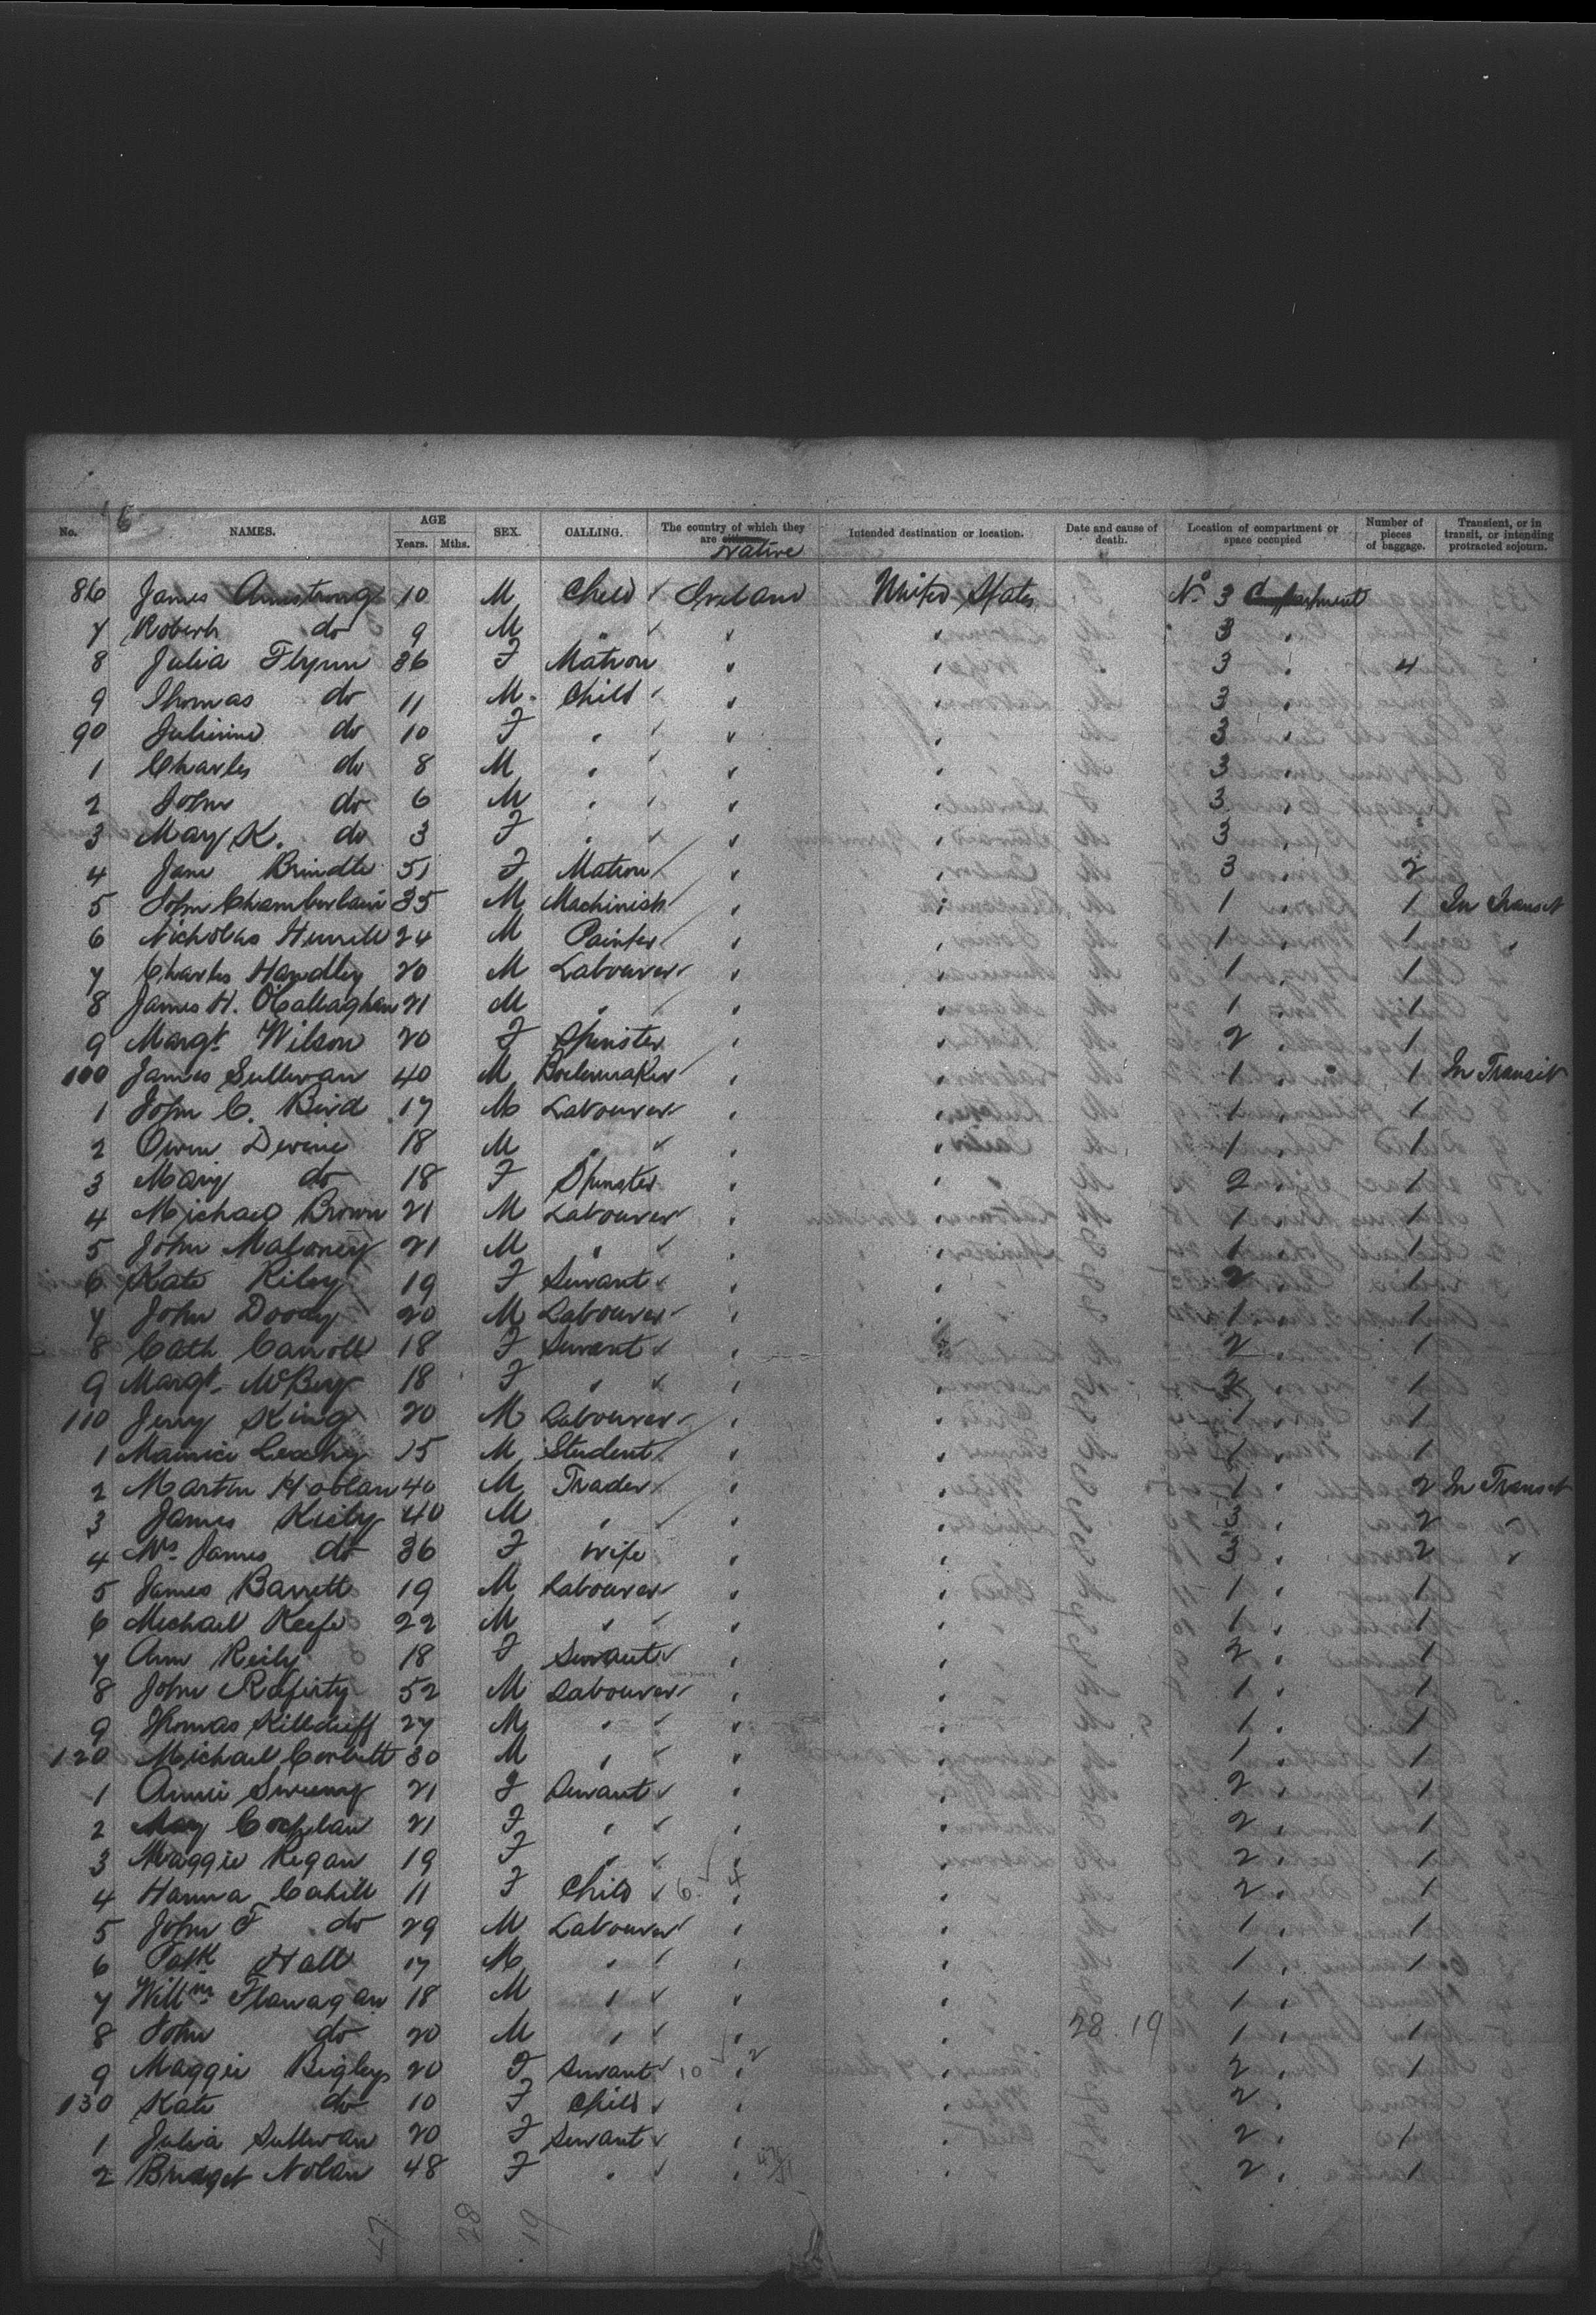 6
No. NAMES. AGE Years. Mths. SEX. CALLING. The country of which they are citizens Native Intended destination or location. Date and cause of death. Location of compartment or space occupied Number of pieces of baggage. Transient, or in transit, or intending protracted sojourn.
86 James Armstrong 10 M Child ✓ Ireland United States No 3 Compartment
7 Robert do 9 M " ✓ " " 3 "
8 Julia Flynn 36 F Matron " " 3 " 4
9 Thomas do 11 M Child ✓ " " 3 "
90 do 10 F " ✓ " " 3 "
1 Charles do 8 M " ✓ " " 3 "
2 John do 6 M " ✓ " " 3 "
3 Mary K. do 3 F " ✓ " " 3 "
4 Jane Brindle 51 F Matron ✓ " " 3 " 2
5 John Chamberlain 35 M Machinist ✓ " " 1 " 1 In Transit
6 Nicholas 24 M Painter ✓ " " 1 " 1 "
7 Charles Handley 20 M Labourer ✓ " " 1 " 1
8 James H. O'Callaghan 21 M " ✓ " " 1 " 1
9 Margt Wilson 20 F Spinster " " 2 " 1
100 James Sullivan 40 M Boilermaker ✓ " " 1 " 1 In Transit
1 John C. Bird 17 M Labourer ✓ " " 1 " 1
2 Owen Devine 18 M " ✓ " " 1 " 1
3 Mary do 18 F Spinster " " 2 " 1
4 Michael Brown 21 M Labourer ✓ " " 1 " 1
5 John Maloney 21 M " ✓ " " 1 " 1
6 Kate Riley 19 F Servant ✓ " " 2 " 1
7 John Doody 20 M Labourer ✓ " " 1 " 1
8 Cath Carroll 18 F Servant ✓ " " 2 " 1
9 Margt 18 F " ✓ " " 2 " 1
110 Jerry King 20 M Labourer ✓ " " 1 " 1
1 Maurice Leahy 15 M Student ✓ " " 1 " 1
2 Martin 40 M Trader ✓ " " 1 " 2 In Transit
3 James Kiely 40 M " ✓ " " 3 " 2 "
4 Mrs James do 36 F Wife " " 3 " 2 "
5 James Barrett 19 M Labourer ✓ " " 1 " 1
6 Michael Keefe 22 M " ✓ " " 1 " 1
7 Ann Reily 18 F Servant ✓ " " 2 " 1
8 John Rafirty 52 M Labourer ✓ " " 1 " 1
9 Thomas Killduff 27 M " ✓ " " 1 " 1
120 Michael Corbett 30 M " ✓ " " 1 " 1
1 Annie Sweeny 21 F Servant ✓ " " 2 " 1
2 May 21 F " ✓ " " 2 " 1
3 Maggie Regan 19 F " ✓ " " 2 " 1
4 Hanna Cahill 11 F Child ✓ 6 4 " " 2 " 1
5 John F do 29 M Labourer ✓ " " 1 " 1
6 Patk Hall 17 M " ✓ " " 1 " 1
7 Willm Flanagan 18 M " ✓ " " 1 "
8 John do 20 M " ✓ " " 28 . 19 1 " 1
9 Maggie Bigley 20 F Servant ✓ 10 2 " " 2 " 1
130 Kate do 10 F Child ✓ " " 2 "
1 Julia Sullivan 20 F Servant ✓ " " 2 " 1
2 Bridget Nolan 48 F " ✓ " " 2 " 1
47 28 19